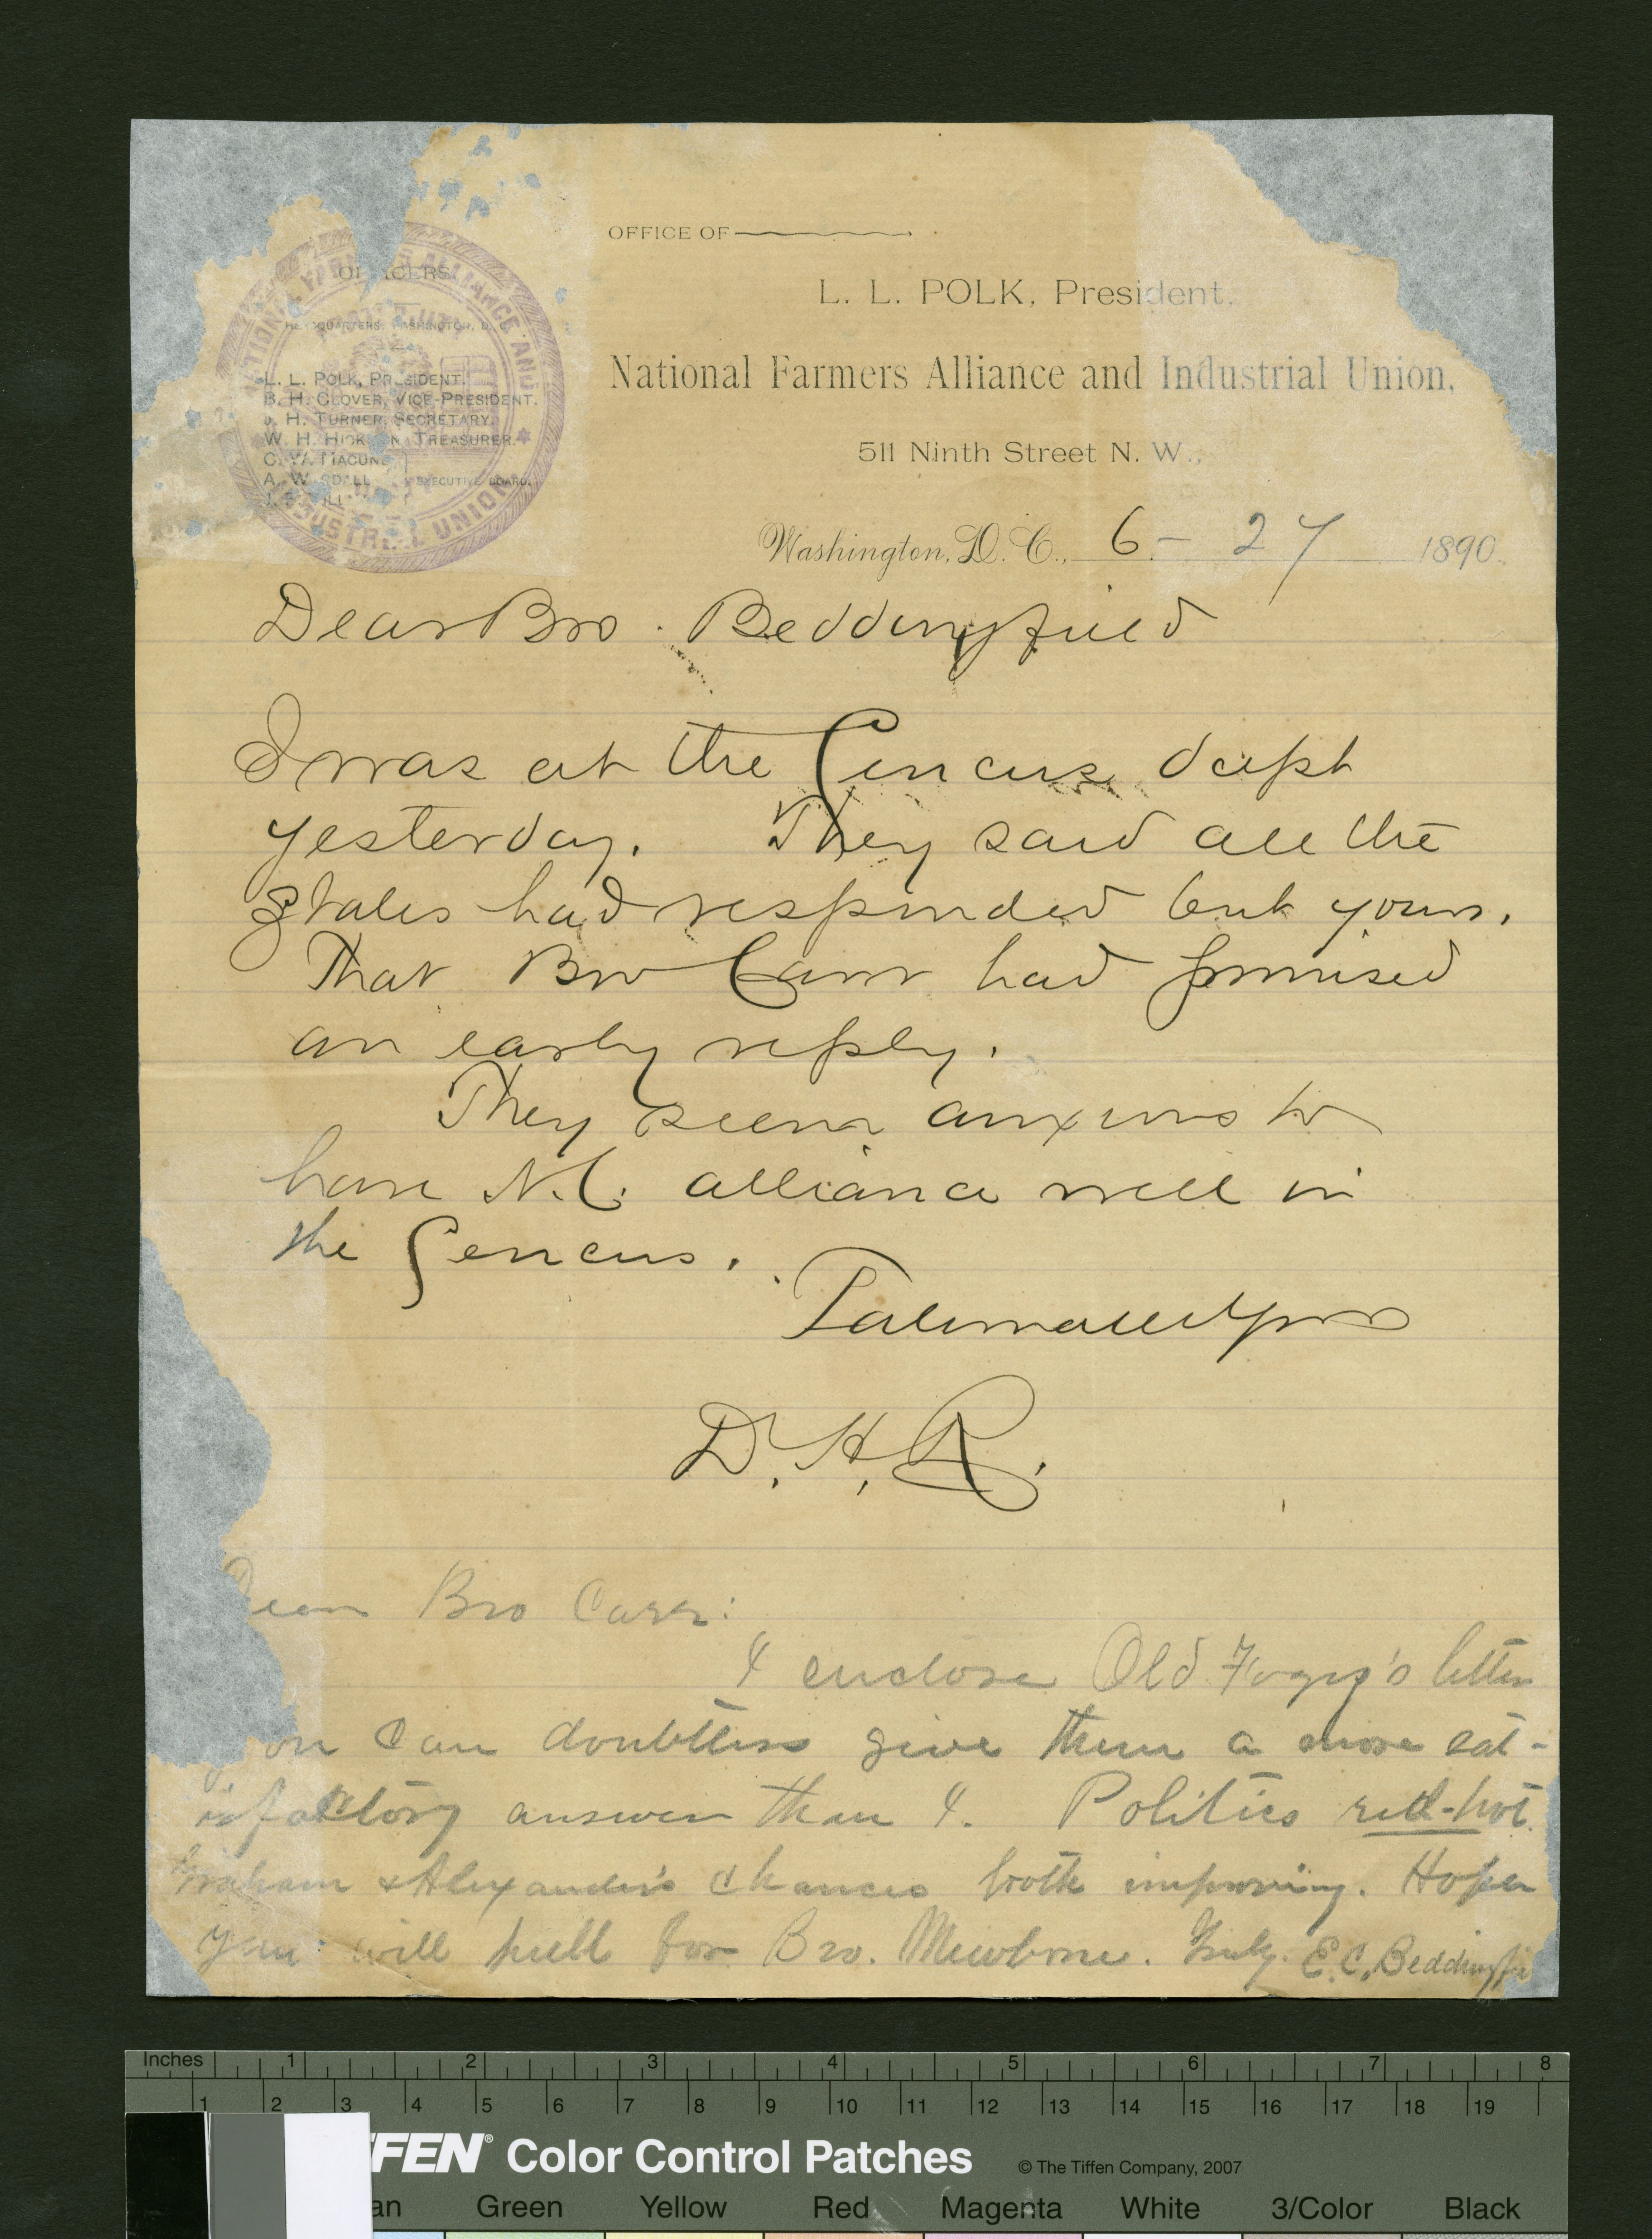 OFFICE OF
L. L. POLK, President,
National Farmers Alliance and Industrial Union,
511 Ninth Street N. W.,
OFFICERS
HEADQUARTERS, WASHINGTON, D. C.
L. L. POLK, PRESIDENT.
B. H. CLOVER, VICE-PRESIDENT.
J. H. TURNER, SECRETARY.
W. H. HICKMAN, TREASURER.
C. W. MACUNE
A. WARDALL EXECUTIVE BOARD.
NATIONAL FARMERS ALLIANCE AND INDUSTRIAL UNION
Washington, D. C., 6 - 27 1890.
Dear Bro. Beddingfield
I was at the Cencus dept
yesterday. They said all the
States had responded but yours.
That Bro Carr had promised
an early reply.
They seem anxious to
have N.C. alliance well in
the Cencus.
D. H. R.
Dear Bro Carr:
I enclose Old Fogy's letter
you can doubtless give them a more sat-
isfactory answer than I. Politics red-hot.
Graham & Alexander's chances both improving. Hope
you will pull for Bro. Mewborne. Truly. E. C. Beddingfie
Inches 1 2 3 4 5 6 7 8
1 2 3 4 5 6 7 8 9 10 11 12 13 14 15 16 17 18 19
FFEN® Color Control Patches © The Tiffen Company, 2007
an Green Yellow Red Magenta White 3/Color Black